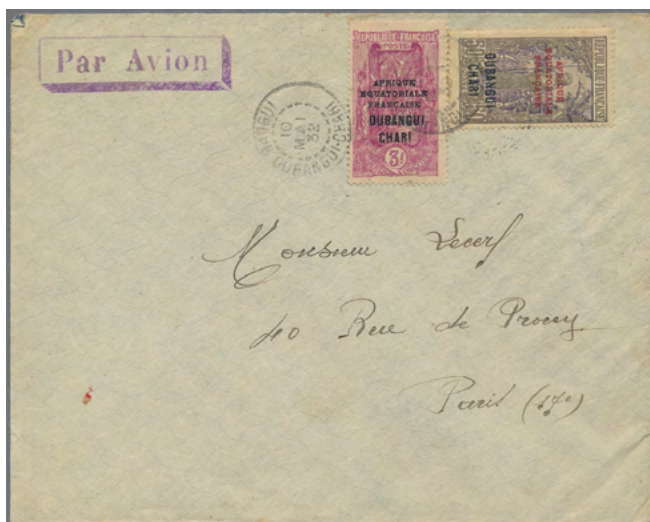 Par Avion
BANGUI
10
MAI
32
OUBANGUI-CHARI
REPUBLIQUE FRANÇAISE
POSTES
AFRIQUE
EQUATORIALE
FRANÇAISE
OUBANGUI
CHARI
3f
REPUBLIQUE FRANÇAISE
50c
AFRIQUE
EQUATORIALE
FRANÇAISE
OUBANGUI
CHARI
Monsieur Lecerf
40 Rue de Prony
Paris (17e)